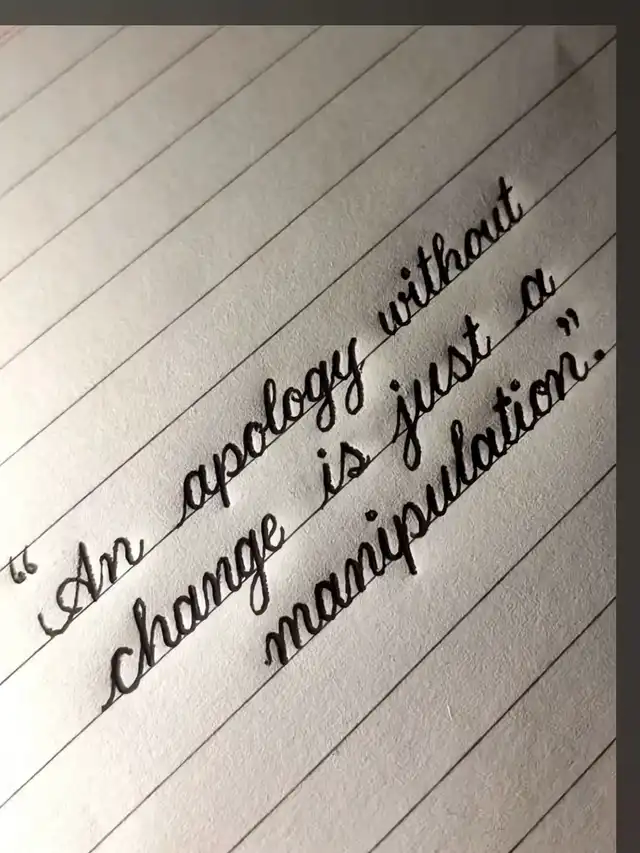 “An apology without
change is just a
manipulation”.